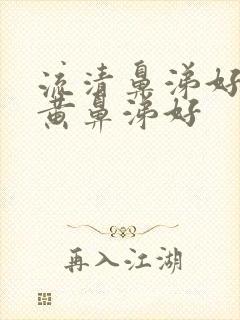 流清鼻涕好
黄鼻涕好
再入江湖